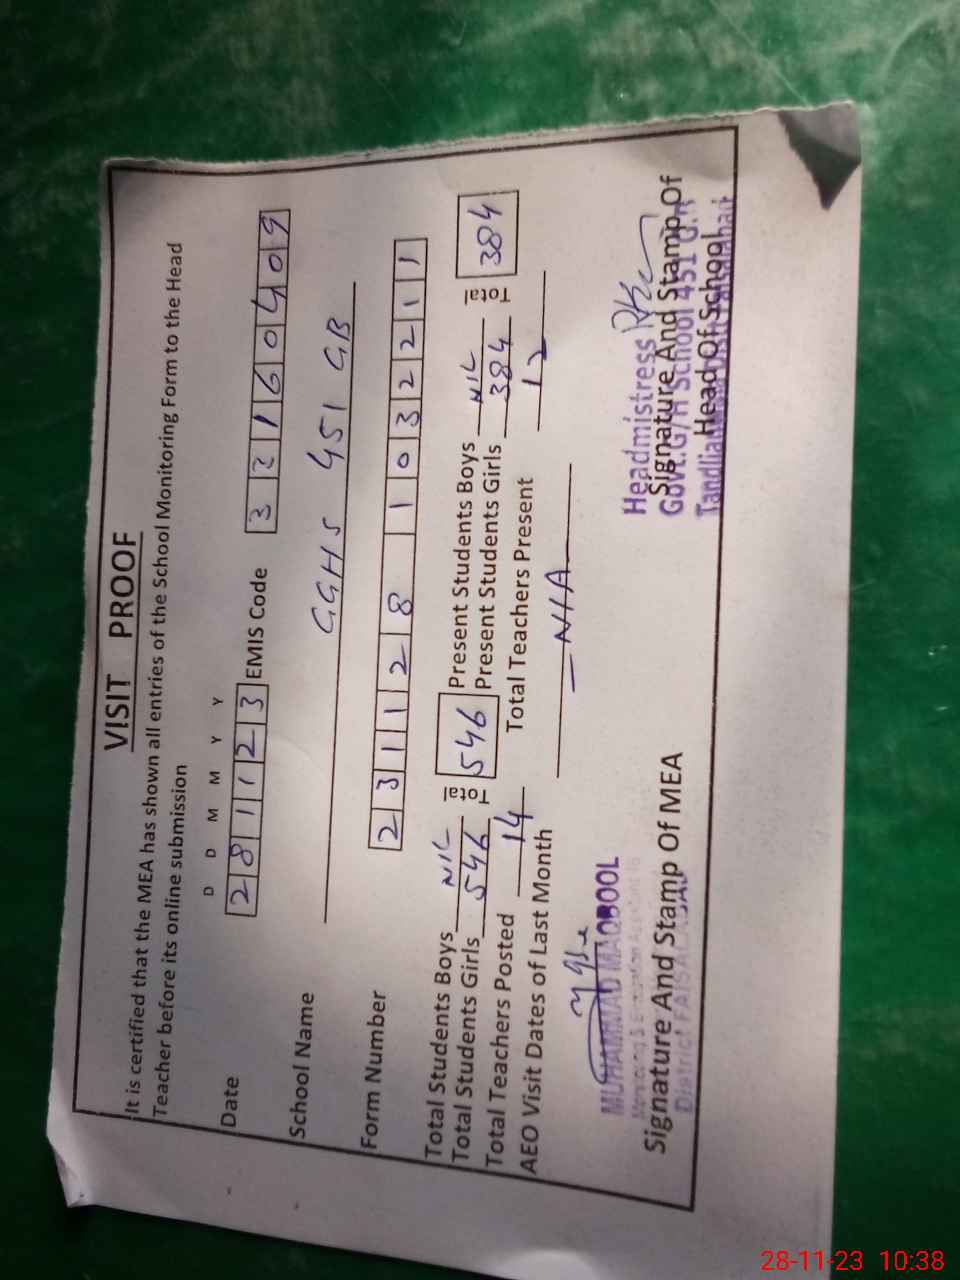 VISIT PROOF
It is certified that the MEA has shown all entries of the School Monitoring Form to the Head
Teacher before its online submission
D D M M Y Y
Date 2 8 1 1 2 3 EMIS Code 3 2 1 6 0 4 0 9
School Name GGHS 451 GB
Form Number 2 3 1 1 2 8 1 0 3 2 2 1 1
Total Students Boys NIL Total 546 Present Students Boys NIL Total 384
Total Students Girls 546 Present Students Girls 384
Total Teachers Posted 14 Total Teachers Present 12
AEO Visit Dates of Last Month — N/A
MUHAMMAD MAQBOOL
Monitoring & Evaluation Assistant
District FAISALABAD
Signature And Stamp Of MEA
Headmistress
Govt.G/H School 451 G.B
Tandlianwala Distt Faisalabad
Signature And Stamp Of
Head Of School
28-11-23 10:38